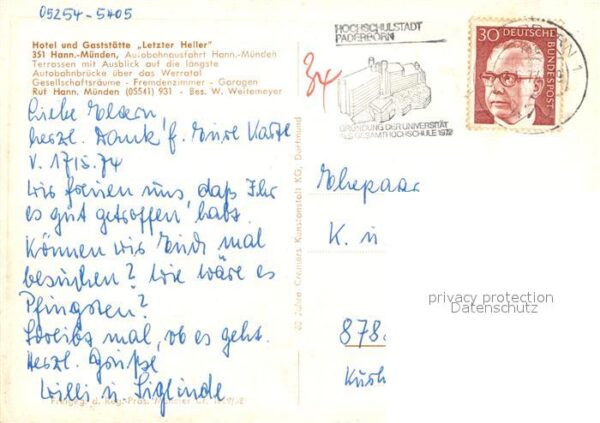 05254-5405
Hotel und Gaststätte „Letzter Heller"
351 Hann.-Münden, Autobahnausfahrt Hann.-Münden
Terrassen mit Ausblick auf die längste
Autobahnbrücke über das Werratal
Gesellschaftsräume - Fremdenzimmer - Garagen
Ruf Hann. Münden (05541) 931 - Bes. W. Weitemeyer
Liebe Eltern,
herzl. Dank f. Eure Karte
v. 17.5.74
Wir freuen uns, daß Ihr
es gut getroffen habt.
Können wir Euch mal
besuchen? Wie wäre es
Pfingsten?
Schreibt mal, ob es geht.
Herzl. Grüße
Willi u. Siglinde
Freigeg. d. Reg.-Präs. Münster
60 Jahre Cramers Kunstanstalt KG, Dortmund
HOCHSCHULSTADT
PADERBORN
GRÜNDUNG DER UNIVERSITÄT
ALS GESAMTHOCHSCHULE 1972
30
DEUTSCHE
BUNDESPOST
Ehepaar
K. u
878
Kurh
privacy protection
Datenschutz